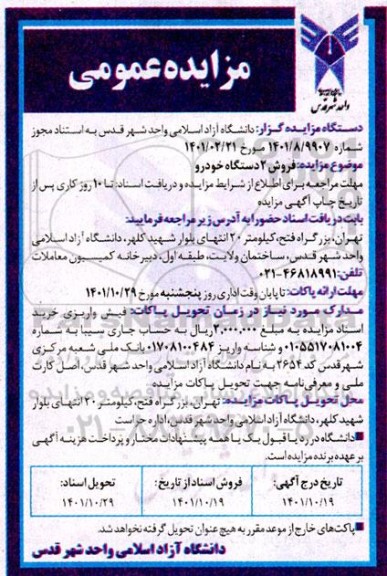 واحد شهر قدس
مزایده عمومی
دستگاه مزایده گزار: دانشگاه آزاد اسلامی واحد شهر قدس به استناد مجوز
شماره ۱۴۰۱/۸/۹۹۰۷ مورخ ۱۴۰۱/۰۲/۲۱
موضوع مزایده: فروش ۲ دستگاه خودرو
مهلت مراجعه برای اطلاع از شرایط مزایده و دریافت اسناد: تا ۱۰ روز کاری پس از
تاریخ چاپ آگهی مزایده
بابت دریافت اسناد حضورا به آدرس زیر مراجعه فرمایید:
تهران، بزرگراه فتح، کیلومتر ۲۰ انتهای بلوار شهید کلهر، دانشگاه آزاد اسلامی
واحد شهر قدس، ساختمان ولایت، طبقه اول، دبیرخانه کمیسیون معاملات
تلفن: ۴۶۸۱۸۹۹۱-۰۲۱
مهلت ارائه پاکات: تا پایان وقت اداری روز پنجشنبه مورخ ۱۴۰۱/۱۰/۲۹
مدارک مورد نیاز در زمان تحویل پاکات: فیش واریزی خرید
اسناد مزایده به مبلغ ۲،۰۰۰،۰۰۰ ریال به حساب جاری سیبا به شماره
۰۱۰۵۵۱۷۰۸۱۰۰۴ و شناسه واریز ۰۱۷۰۸۱۰۰۴۸۴ بانک ملی شعبه مرکزی
شهر قدس کد ۲۶۵۴ به نام دانشگاه آزاد اسلامی واحد شهر قدس، اصل کارت
ملی و معرفی نامه جهت تحویل پاکات مزایده
محل تحویل پاکات مزایده: تهران، بزرگراه فتح، کیلومتر ۲۰ انتهای بلوار
شهید کلهر، دانشگاه آزاد اسلامی واحد شهر قدس، اداره حراست
دانشگاه در رد یا قبول یک یا همه پیشنهادات مختار و پرداخت هزینه آگهی
بر عهده برنده مزایده است.
تاریخ درج آگهی: فروش اسناد از تاریخ: تحویل اسناد:
۱۴۰۱/۱۰/۱۹ ۱۴۰۱/۱۰/۱۹ ۱۴۰۱/۱۰/۲۹
پاکت‌های خارج از موعد مقرر به هیچ عنوان تحویل گرفته نخواهد شد.
دانشگاه آزاد اسلامی واحد شهر قدس